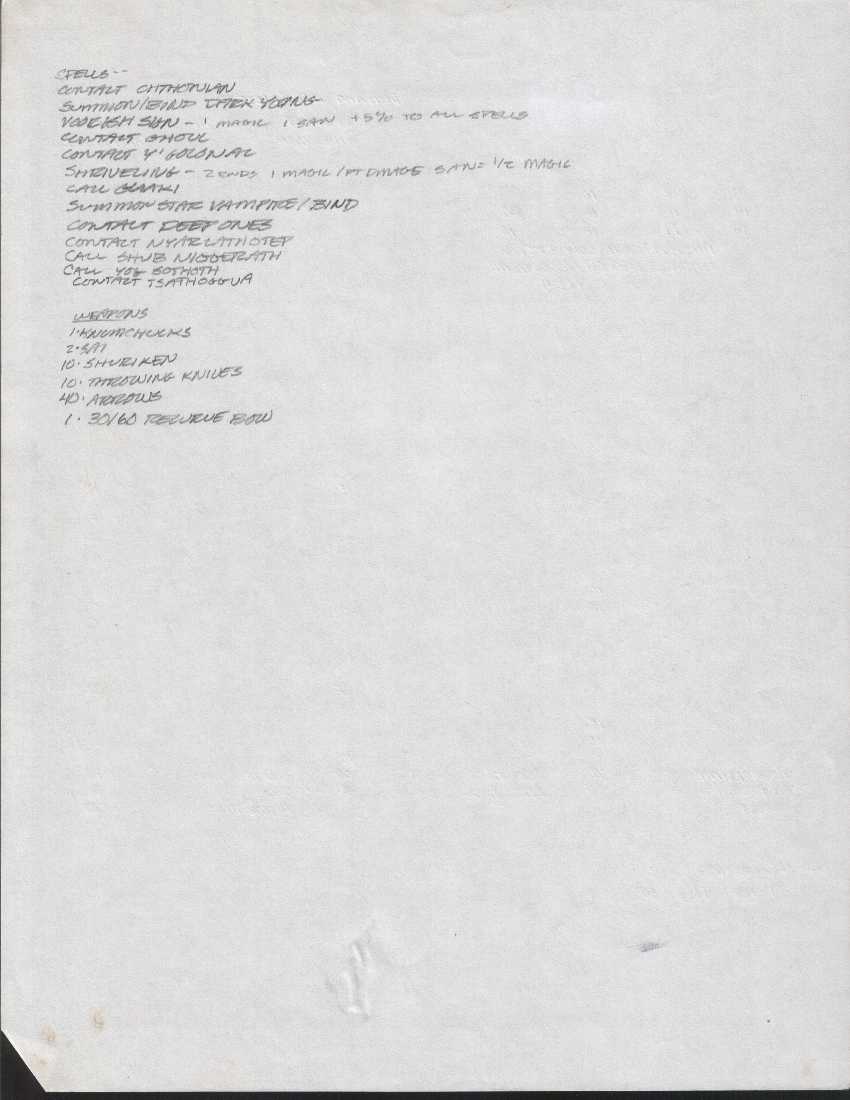 SPELLS--
CONTACT CHTHONIAN
SUMMON/BIND DARK YOUNG
VOOEISH SIGN - 1 MAGIC 1 SAN +5% TO ALL SPELLS
CONTACT GHOUL
CONTACT Y'GOLONAC
SHRIVELING - 2 RNDS 1 MAGIC /PT DAMAGE SAN= 1/2 MAGIC
CALL GLAAKI
SUMMON STAR VAMPIRE/BIND
CONTACT DEEP ONES
CONTACT NYARLATHOTEP
CALL SHUB NIGGERATH
CALL YOG SOTHOTH
CONTACT TSATHOGGUA
WEAPONS
1·KNUMCHUCKS
2·SAI
10·SHURIKEN
10·THROWING KNIVES
40·ARROWS
1·30/60 RECURVE BOW